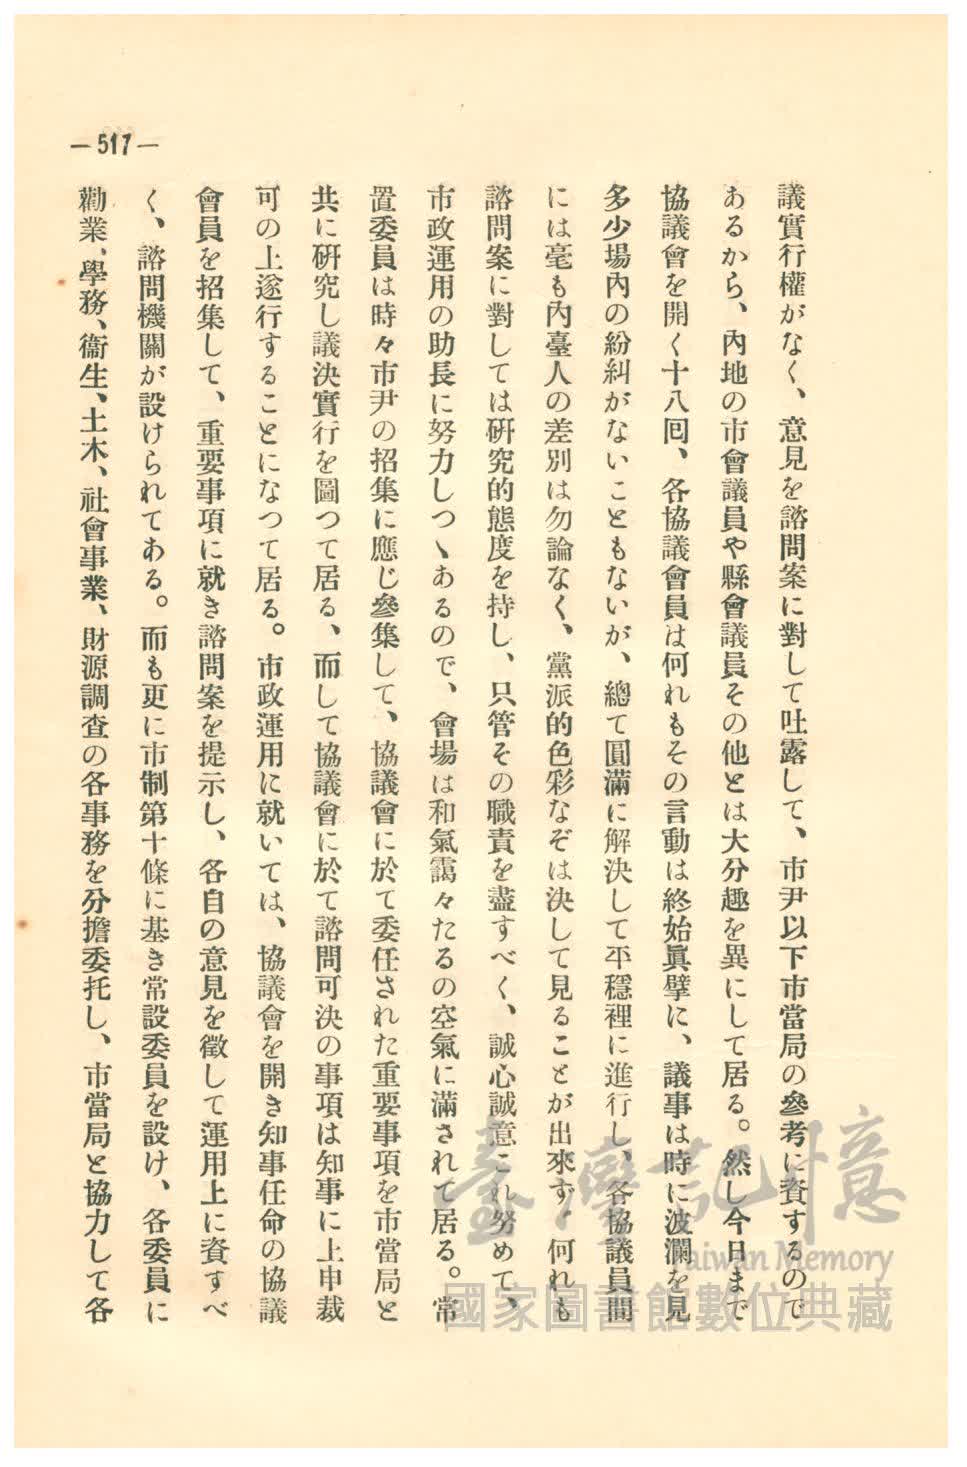 —517—
議實行權がなく、意見を諮問案に對して吐露して、市尹以下市當局の參考に資するので
あるから、內地の市會議員や縣會議員その他とは大分趣を異にして居る。然し今日まで
協議會を開く十八囘、各協議會員は何れもその言動は終始眞摯に、議事は時に波瀾を見
多少場內の紛糾がないこともないが、總て圓滿に解決して平穩裡に進行し、各協議員間
には毫も內臺人の差別は勿論なく、黨派的色彩なぞは決して見ることが出來ず、何れも
諮問案に對しては硏究的態度を持し、只管その職責を盡すべく、誠心誠意これ努めて、
市政運用の助長に努力しつゝあるので、會場は和氣靄々たるの空氣に滿されて居る。常
置委員は時々市尹の招集に應じ參集して、協議會に於て委任された重要事項を市當局と
共に硏究し議決實行を圖つて居る、而して協議會に於て諮問可決の事項は知事に上申裁
可の上遂行することになつて居る。市政運用に就いては、協議會を開き知事任命の協議
會員を招集して、重要事項に就き諮問案を提示し、各自の意見を徵して運用上に資すべ
く、諮問機關が設けられてある。而も更に市制第十條に基き常設委員を設け、各委員に
勸業、學務、衞生、土木、社會事業、財源調査の各事務を分擔委托し、市當局と協力して各
臺灣記憶
Taiwan Memory
國家圖書館數位典藏